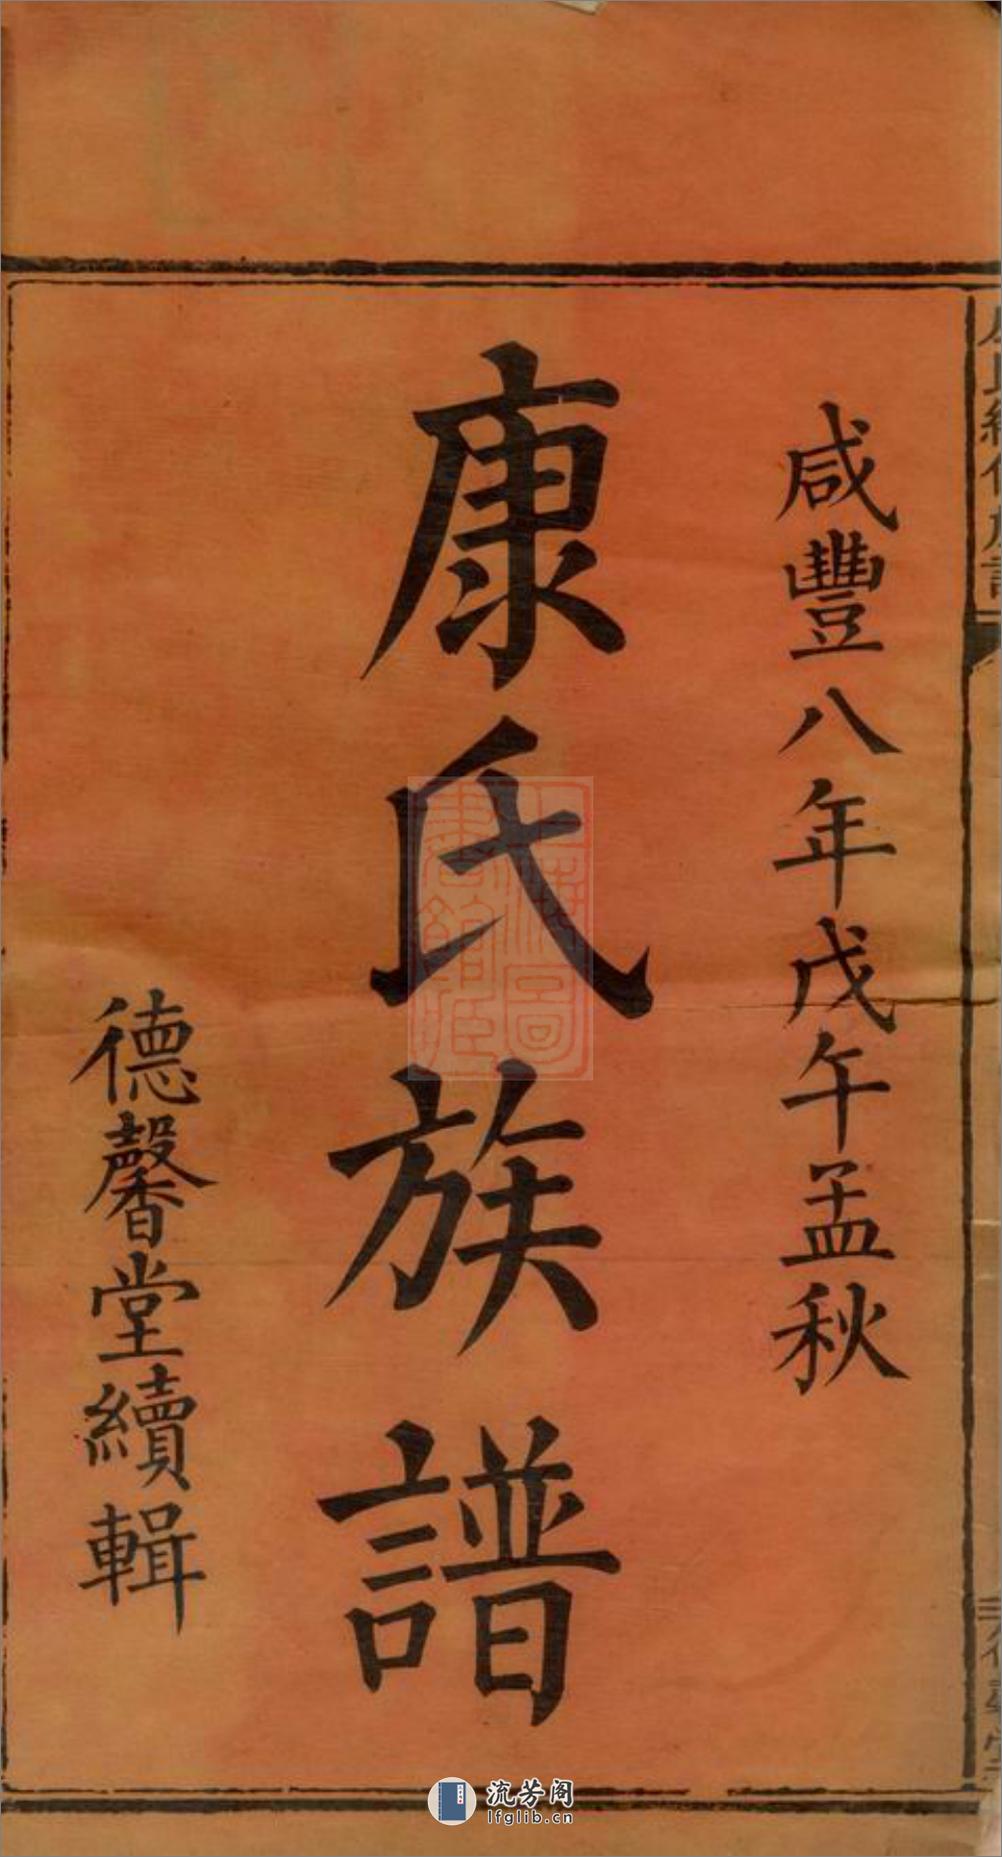 咸豐八年戊午孟秋
康氏族譜
德馨堂續輯
上海圖書館藏
流芳阁
lfglib.cn